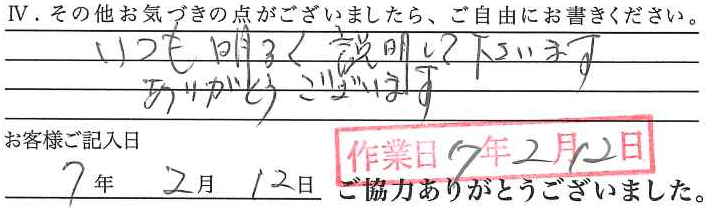 Ⅳ．その他お気づきの点がございましたら、ご自由にお書きください。
いつも明るく説明して下さいます
ありがとうございます
お客様ご記入日
作業日 7年2月12日
7年 2月 12日
ご協力ありがとうございました。